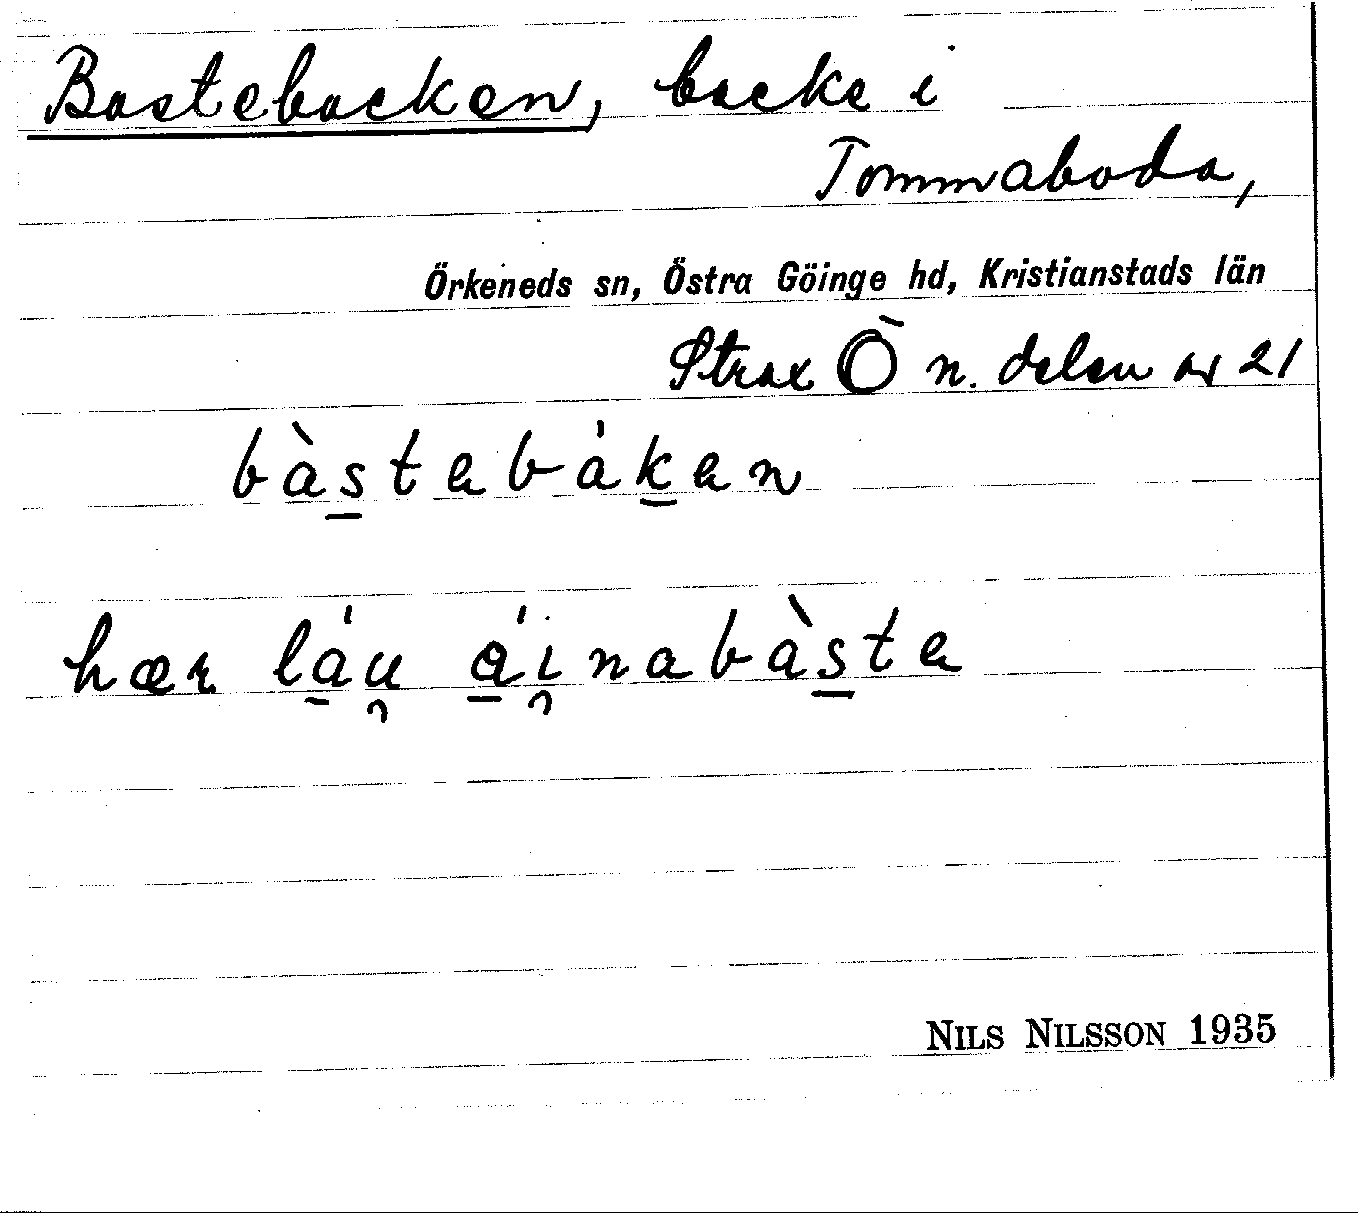 Bastebacken, backe i
Tommaboda,
Örkeneds sn, Östra Göinge hd, Kristianstads län
Strax Ö n. delen av 21
bàstebáken
hær láu áinabàste
NILS NILSSON 1935